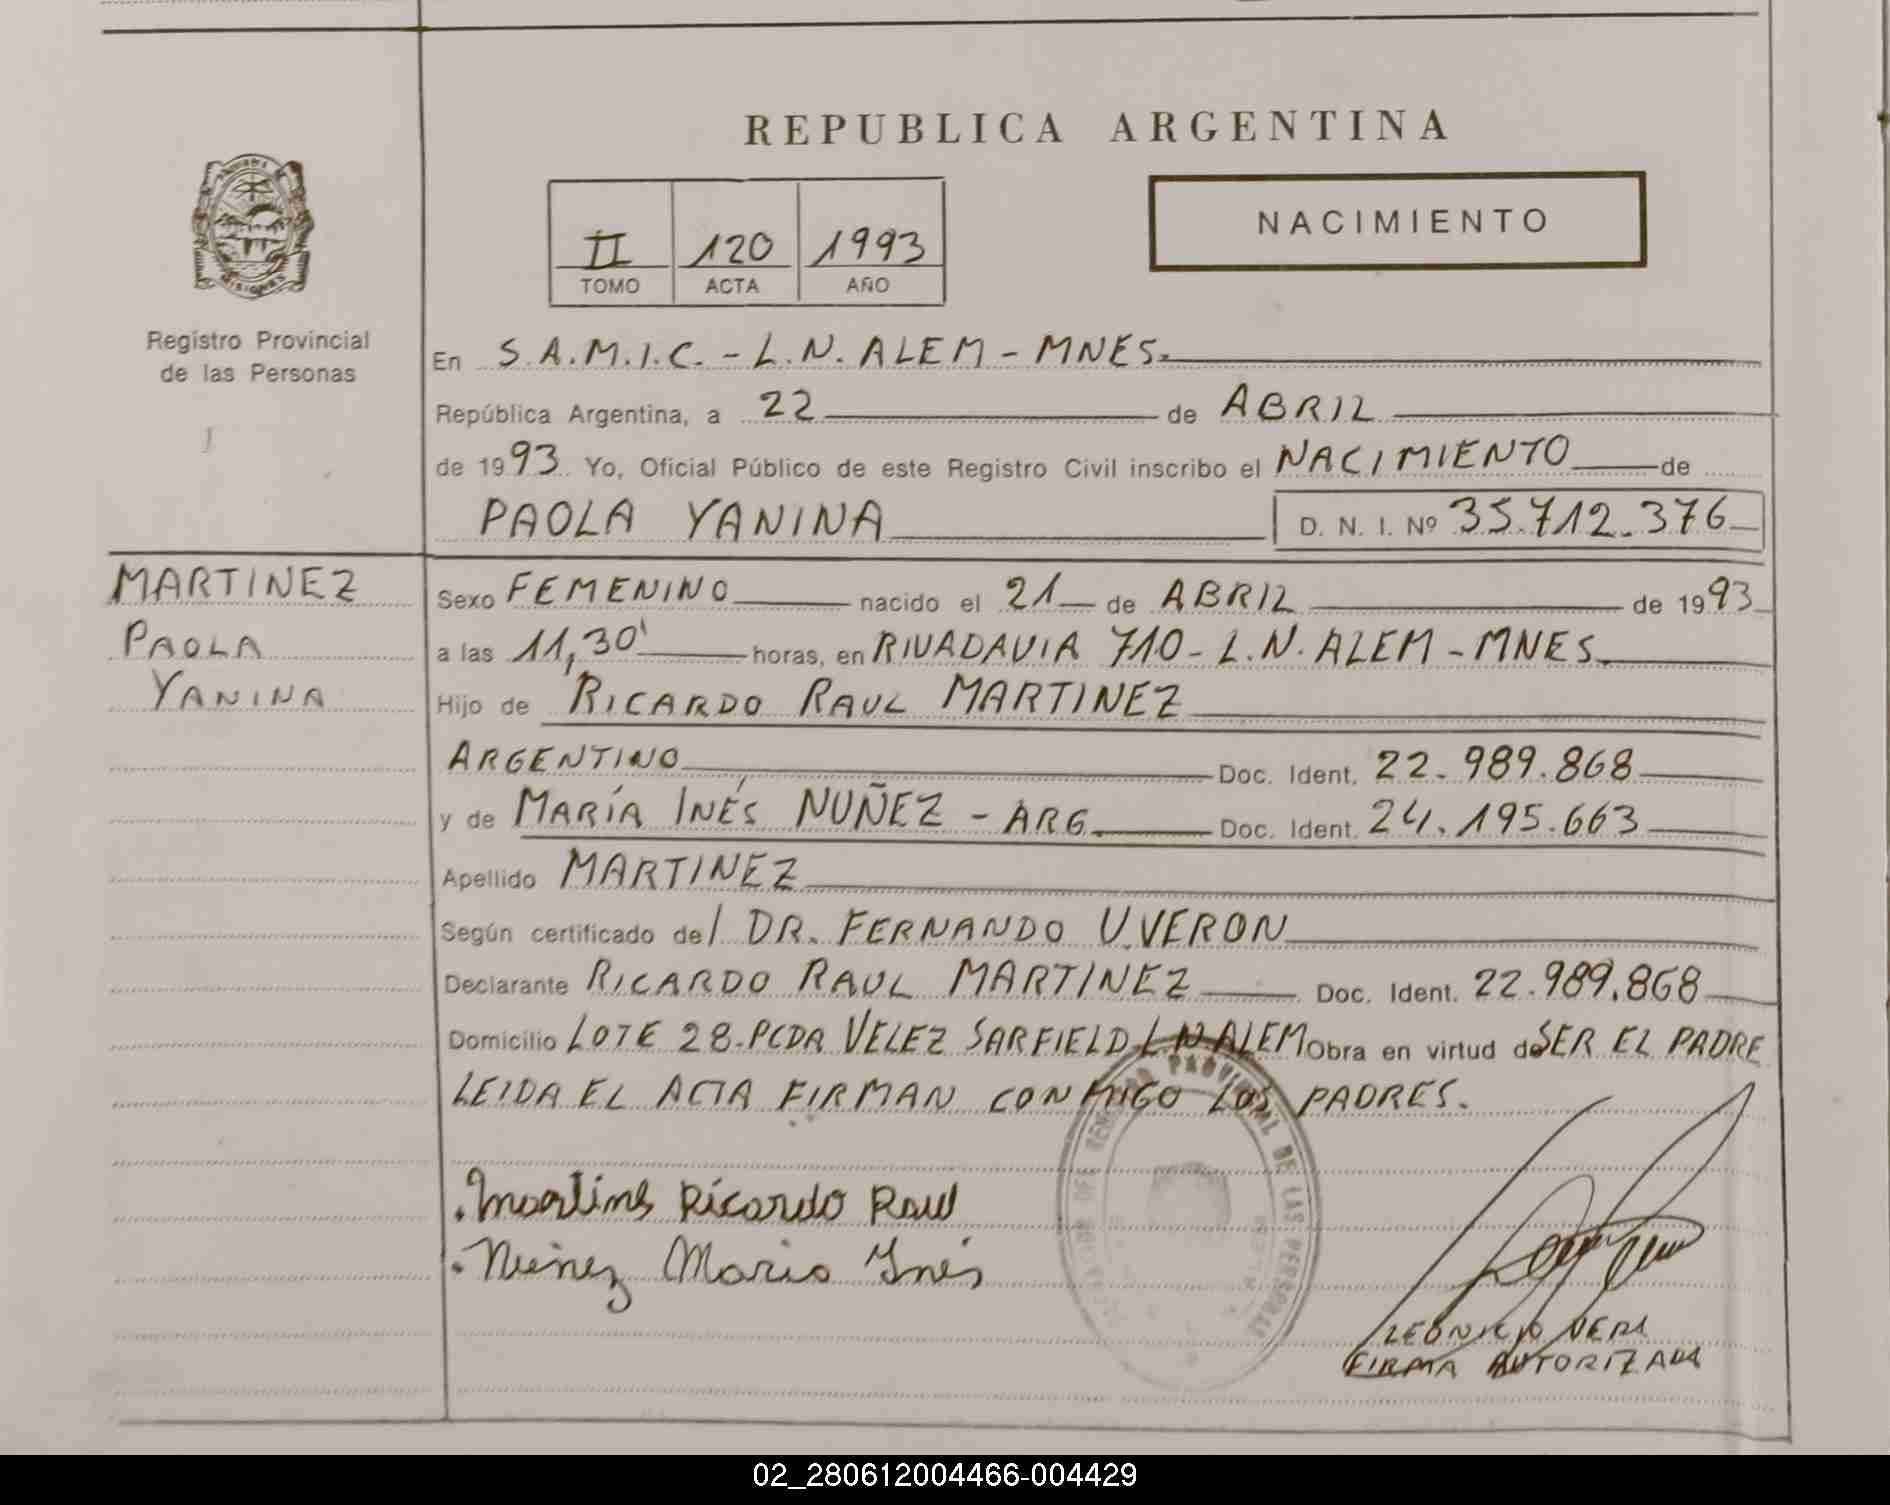 REPUBLICA ARGENTINA
NACIMIENTO
II 120 1993
TOMO ACTA AÑO
MISIONES
Registro Provincial
de las Personas
En S.A.M.I.C. - L.N. ALEM - MNES.
República Argentina, a 22 de ABRIL
de 1993 Yo, Oficial Público de este Registro Civil inscribo el NACIMIENTO de
PAOLA YANINA D. N. I. Nº 35.712.376
MARTINEZ
PAOLA
YANINA
Sexo FEMENINO nacido el 21 de ABRIL de 1993
a las 11,30' horas, en RIVADAVIA 710 - L.N. ALEM - MNES.
Hijo de RICARDO RAUL MARTINEZ
ARGENTINO Doc. Ident. 22.989.868
y de MARÍA INÉS NUÑEZ - ARG. Doc. Ident. 24.195.663
Apellido MARTINEZ
Según certificado de/ DR. FERNANDO U. VERON
Declarante RICARDO RAUL MARTINEZ Doc. Ident. 22.989.868
Domicilio LOTE 28-PCDA VELEZ SARFIELD L N ALEM Obra en virtud de SER EL PADRE
LEIDA EL ACTA FIRMAN CONMIGO LOS PADRES.
REGISTRO PROVINCIAL DE LAS PERSONAS
. Martines Ricardo Raul
. Nuñez Maria Ines
FIRMA AUTORIZADA
02_280612004466-004429